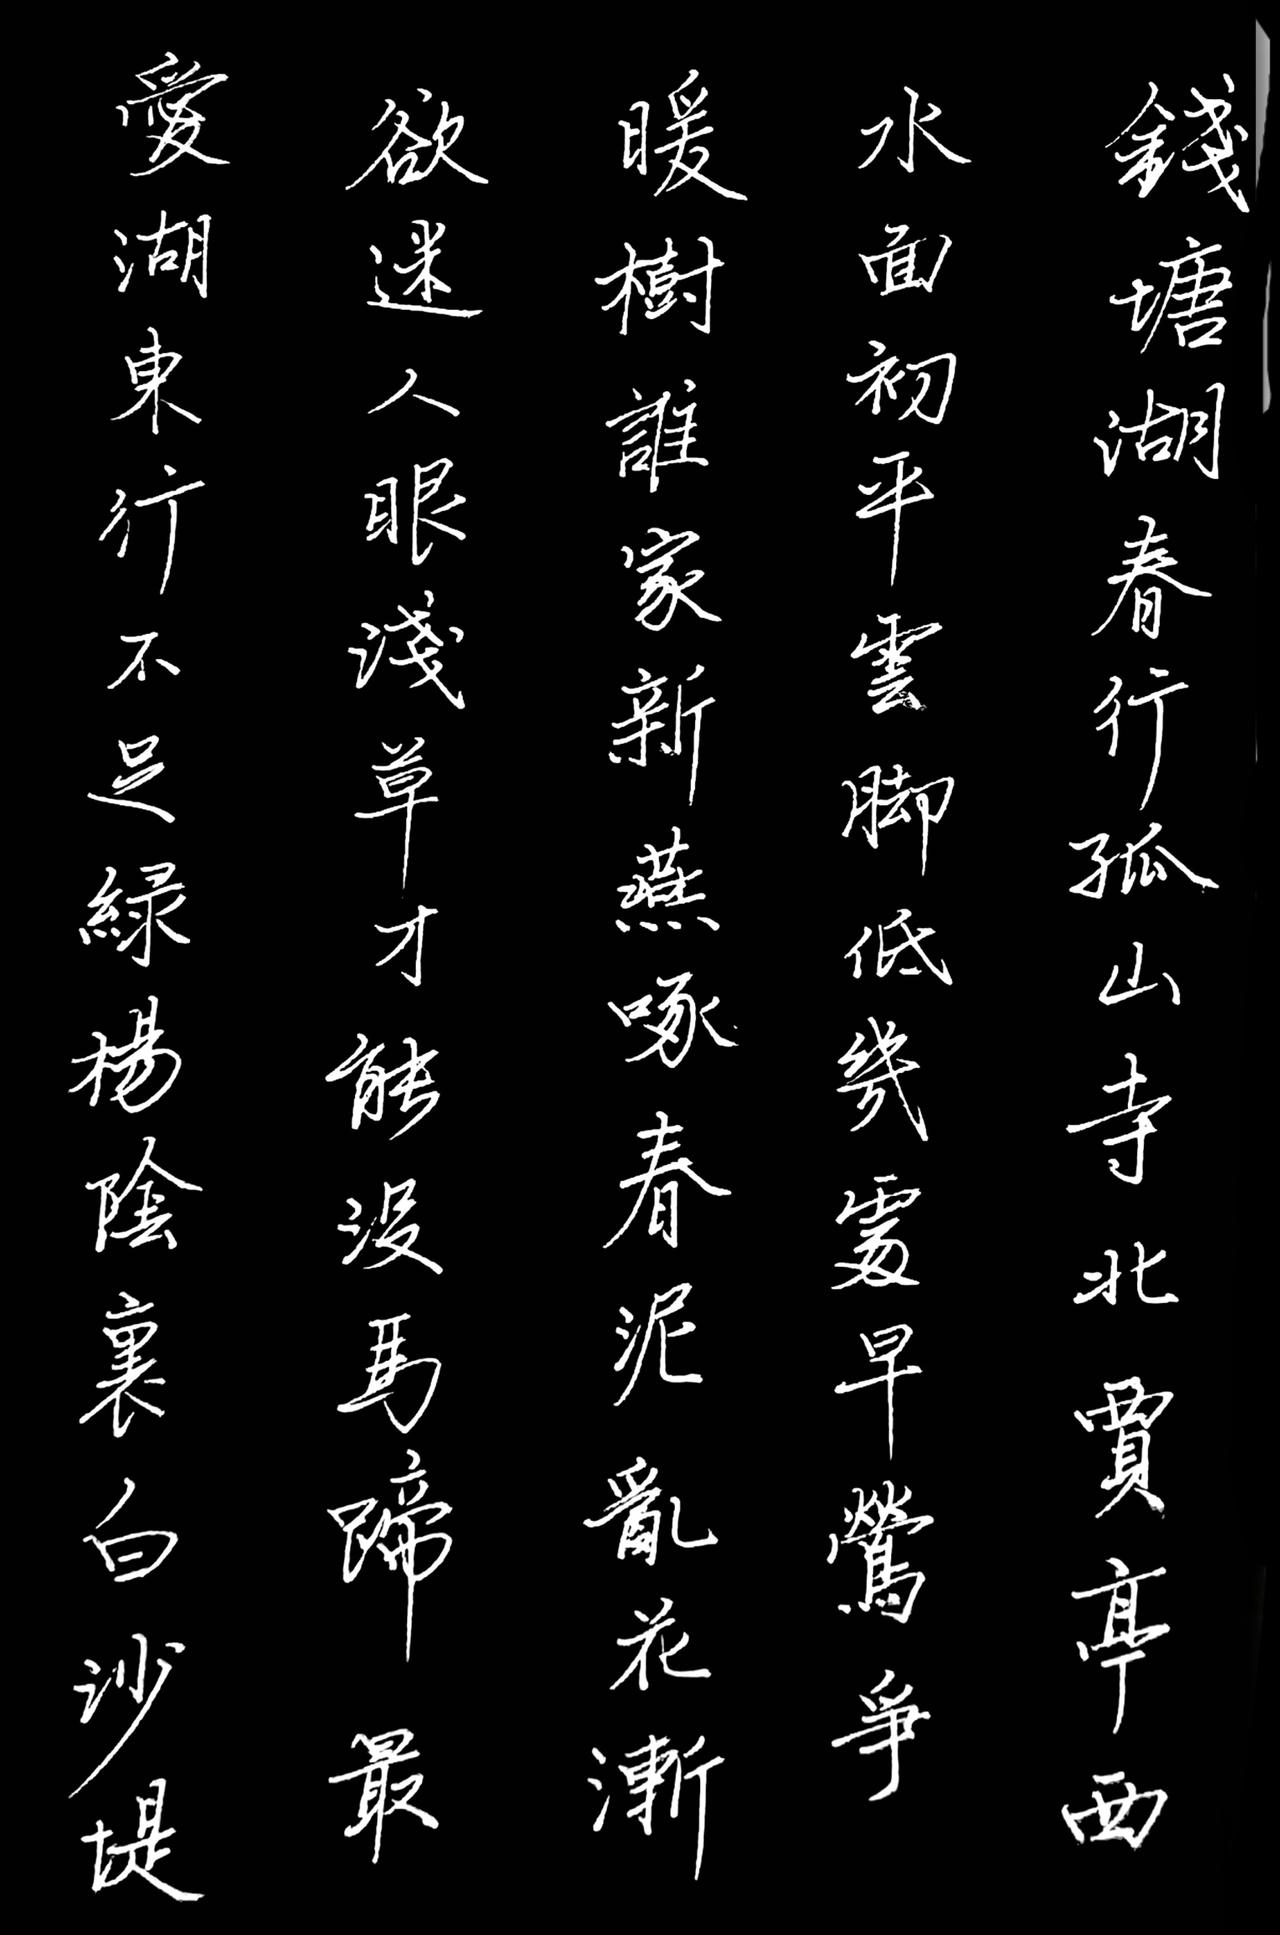 錢塘湖春行孤山寺北賈亭西
水面初平雲脚低幾處早鶯爭
暖樹誰家新燕啄春泥亂花漸
欲迷人眼淺草才能沒馬蹄最
愛湖東行不足綠楊陰裏白沙堤